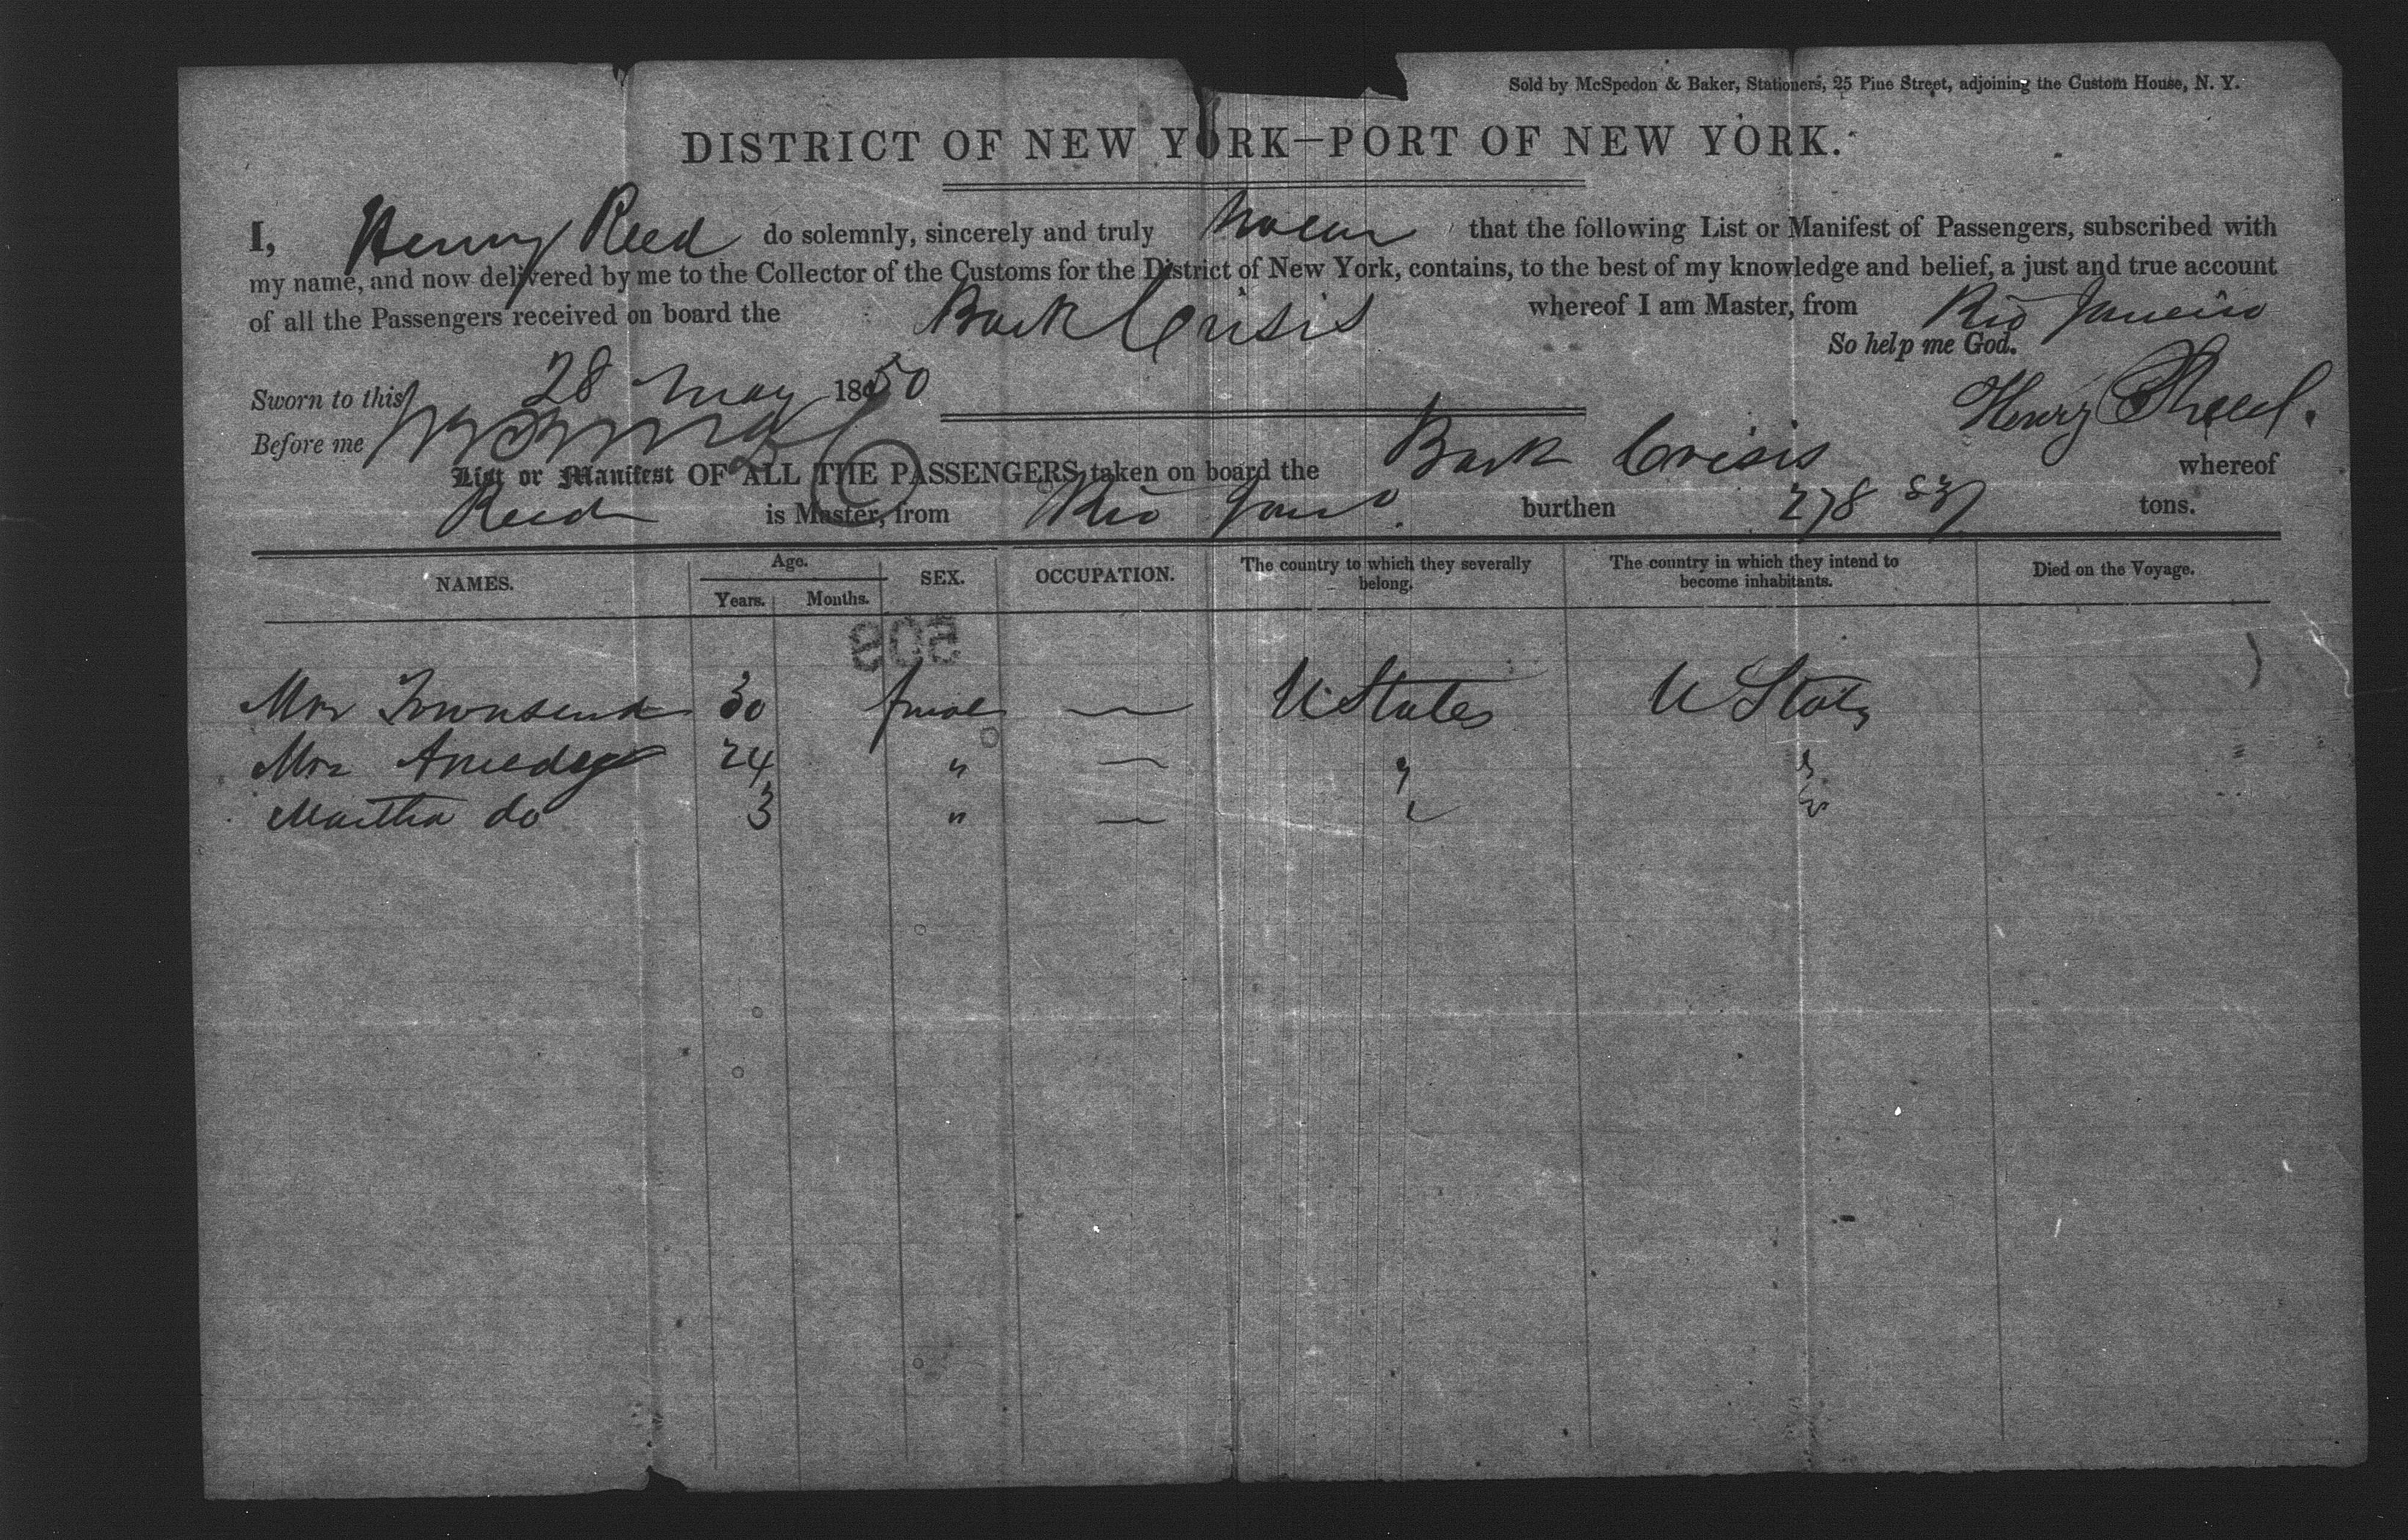 Sold by McSpedon & Baker, Stationers, 25 Pine Street, adjoining the Custom House, N. Y.
DISTRICT OF NEW YORK—PORT OF NEW YORK.
I, Henry Reed do solemnly, sincerely and truly swear that the following List or Manifest of Passengers, subscribed with
my name, and now delivered by me to the Collector of the Customs for the District of New York, contains, to the best of my knowledge and belief, a just and true account
of all the Passengers received on board the Bark Crisis whereof I am Master, from Rio Janeiro
So help me God.
Sworn to this 28 May 1850
Henry Reed.
Before me
List or Manifest OF ALL THE PASSENGERS taken on board the Bark Crisis whereof
Reed is Master, from Rio Jano. burthen 278 tons.
NAMES. Age. SEX. OCCUPATION. The country to which they severally belong. The country in which they intend to become inhabitants. Died on the Voyage.
Years. Months.
509
Mrs Townsend 30 female — U States U States
Mrs 24 " — "
Martha do 3 " —